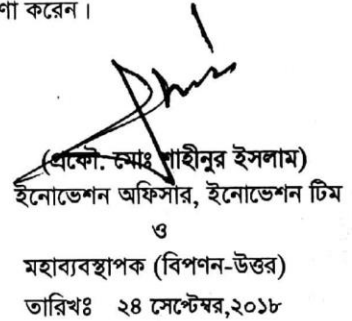 ণা করেন।
(প্রকৌ. মোঃ শাহীনুর ইসলাম)
ইনোভেশন অফিসার, ইনোভেশন টিম
ও
মহাব্যবস্থাপক (বিপণন-উত্তর)
তারিখঃ ২৪ সেপ্টেম্বর,২০১৮